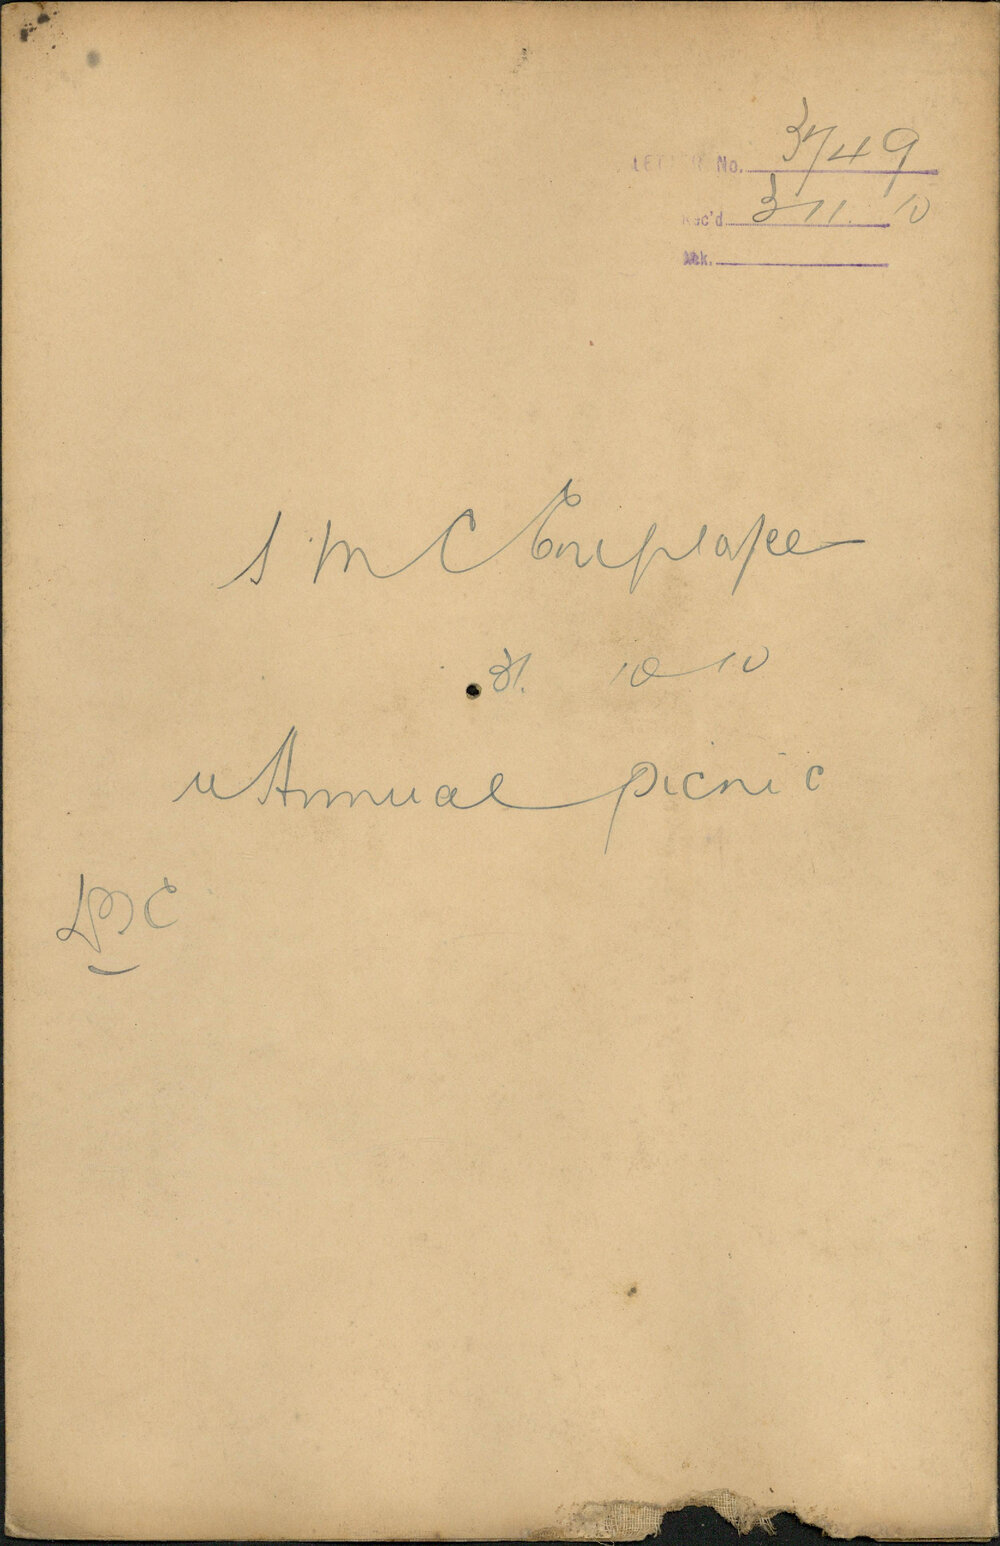 LETTER No. 3749
Rec'd 3 11. 10
Ack.
S M C Employee
31. 10 10
u Annual picnic